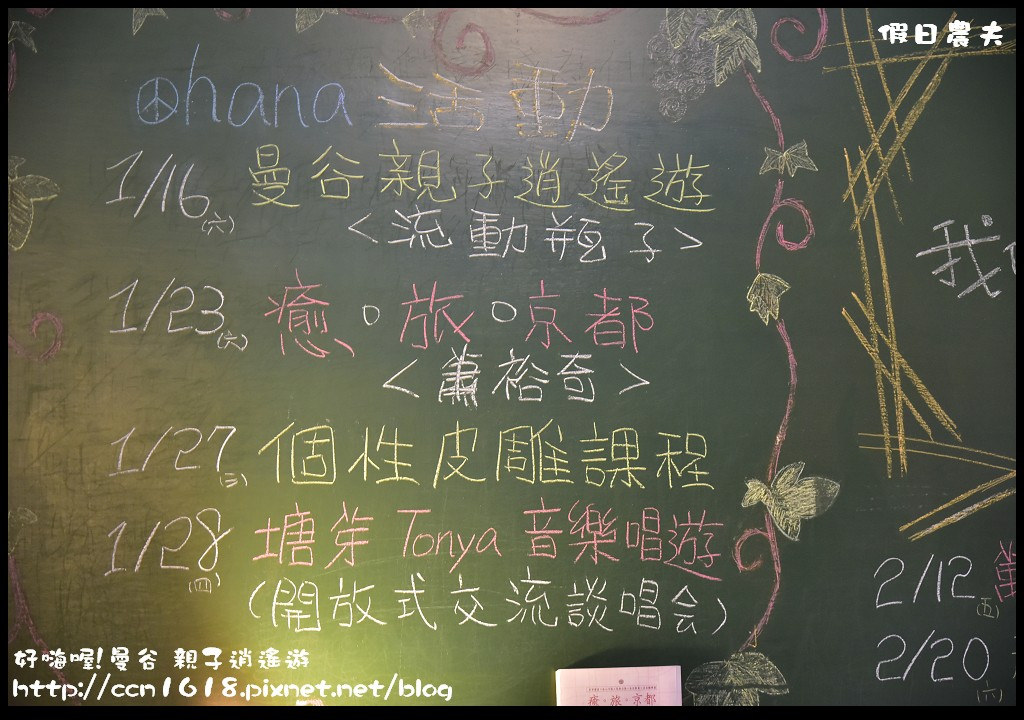 假日農夫
ohana 活動
1/16(六) 曼谷親子逍遙遊
<流動瓶子>
1/23(六) 癒。旅。京都
<蕭裕奇>
1/27(三) 個性皮雕課程
1/28(四) 塘芽 Tonya 音樂唱遊
(開放式交流談唱会)
我
2/12(五)
2/20(六)
癒・旅・京都
好嗨喔!曼谷 親子逍遙遊
http://ccn1618.pixnet.net/blog